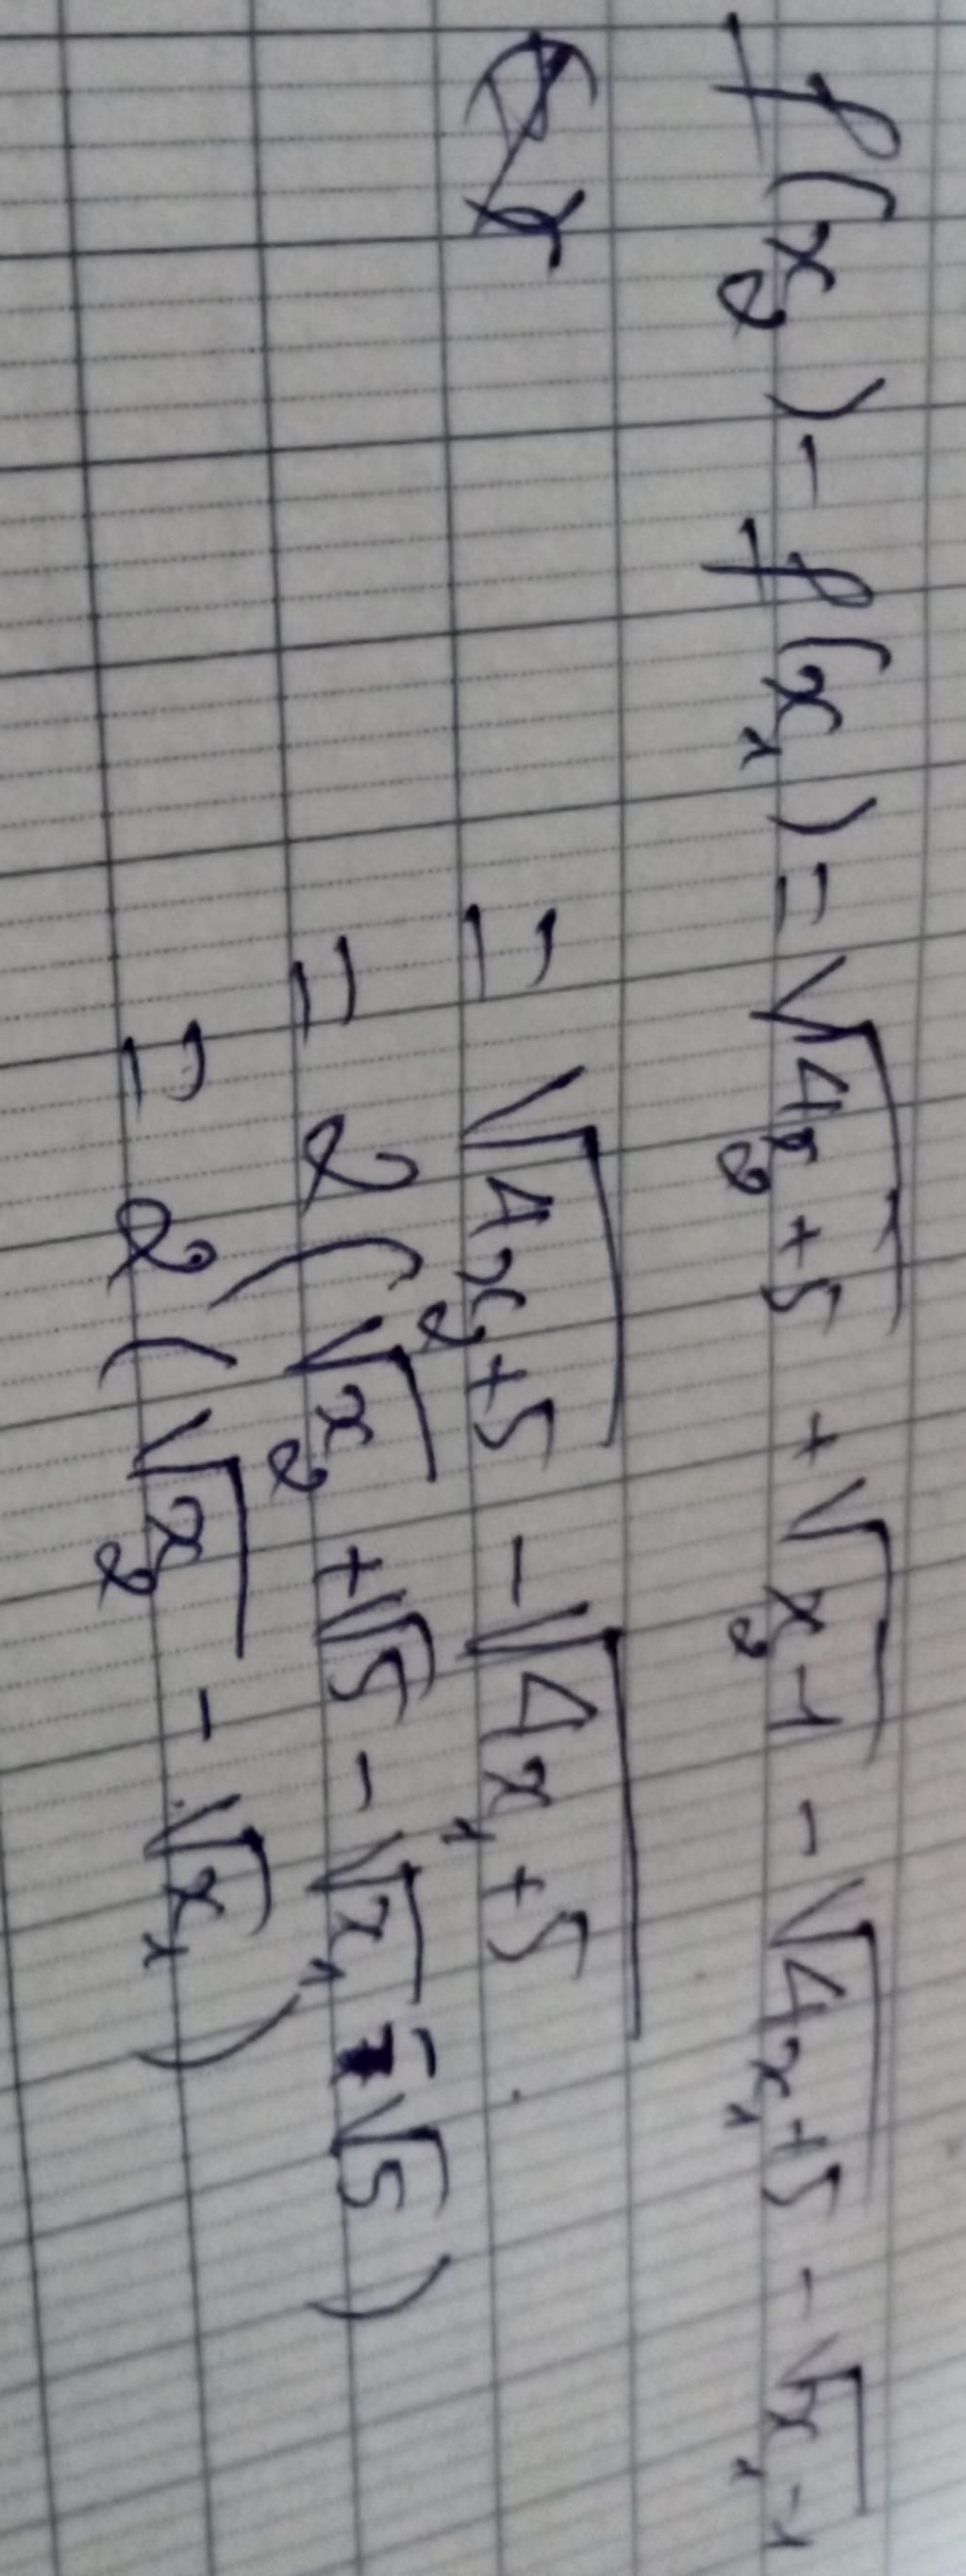 f(x₂) - f(x₁) = √(4x₂+5) + √(x₂-1) - √(4x₁+5) - √(x₁-1)
= √(4x₂+5) - √(4x₁+5)
= 2(√x₂ + √5 - √x₁ - √5)
= 2(√x₂ - √x₁)